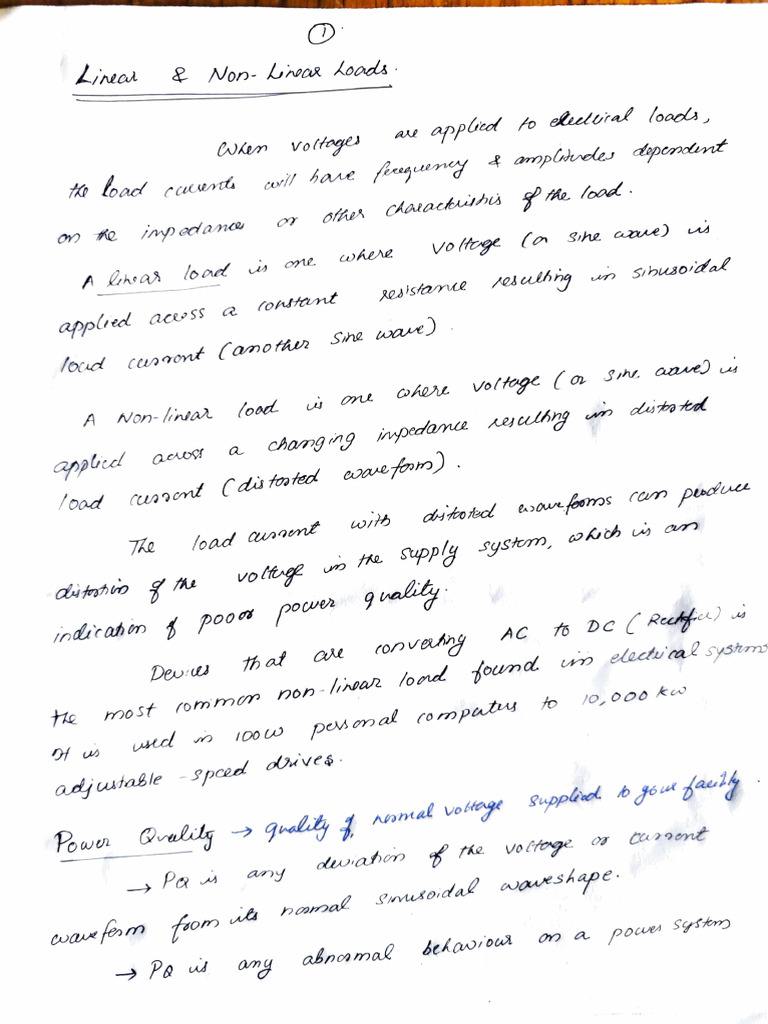 1
Linear & Non-Linear Loads.
When voltages are applied to electrical loads,
the load currents will have frequency & amplitudes dependent
on the impedance or other characteristics of the load.
A linear load is one where voltage (or sine wave) is
applied across a constant resistance resulting in sinusoidal
load current (another sine wave).
A Non-linear load is one where voltage (or sine wave) is
applied across a changing impedance resulting in distorted
load current (distorted waveform).
The load current with distorted waveforms can produce
distortion of the voltage in the supply system, which is an
indication of pooor power quality.
Devices that are converting AC to DC (Rectifier) is
the most common non-linear load found in electrical systems
It is used in 100W personal computers to 10,000 kW
adjustable-speed drives.
Power Quality → quality of normal voltage supplied to your facility.
→ PQ is any deviation of the voltage or current
waveform from its normal sinusoidal waveshape.
→ PQ is any abnormal behaviour on a power system